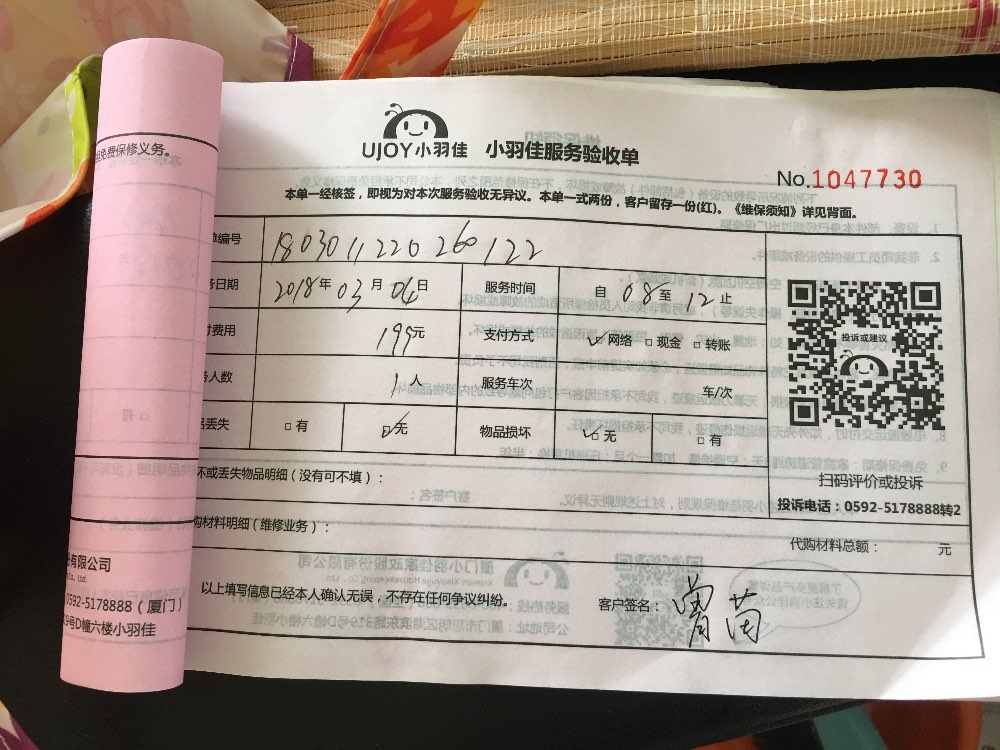 且免费保修义务。
UJOY小羽佳 小羽佳服务验收单
No.1047730
本单一经核签，即视为对本次服务验收无异议。本单一式两份，客户留存一份(红)。《维保须知》详见背面。
单编号 180301122026０122
务日期 2018年03月04日 服务时间 自08至12止
付费用 199元 支付方式 ☑网络 □现金 □转账
务人数 1人 服务车次 车/次
品丢失 □有 ☑无 物品损坏 ☑无 □有
投诉或建议
扫码评价或投诉
投诉电话：0592-5178888转2
坏或丢失物品明细（没有可不填）：
购材料明细（维修业务）：
代购材料总额： 元
以上填写信息已经本人确认无误，不存在任何争议纠纷。 客户签名：
份有限公司
Co., Ltd.
0592-5178888（厦门）
19号D幢六楼小羽佳